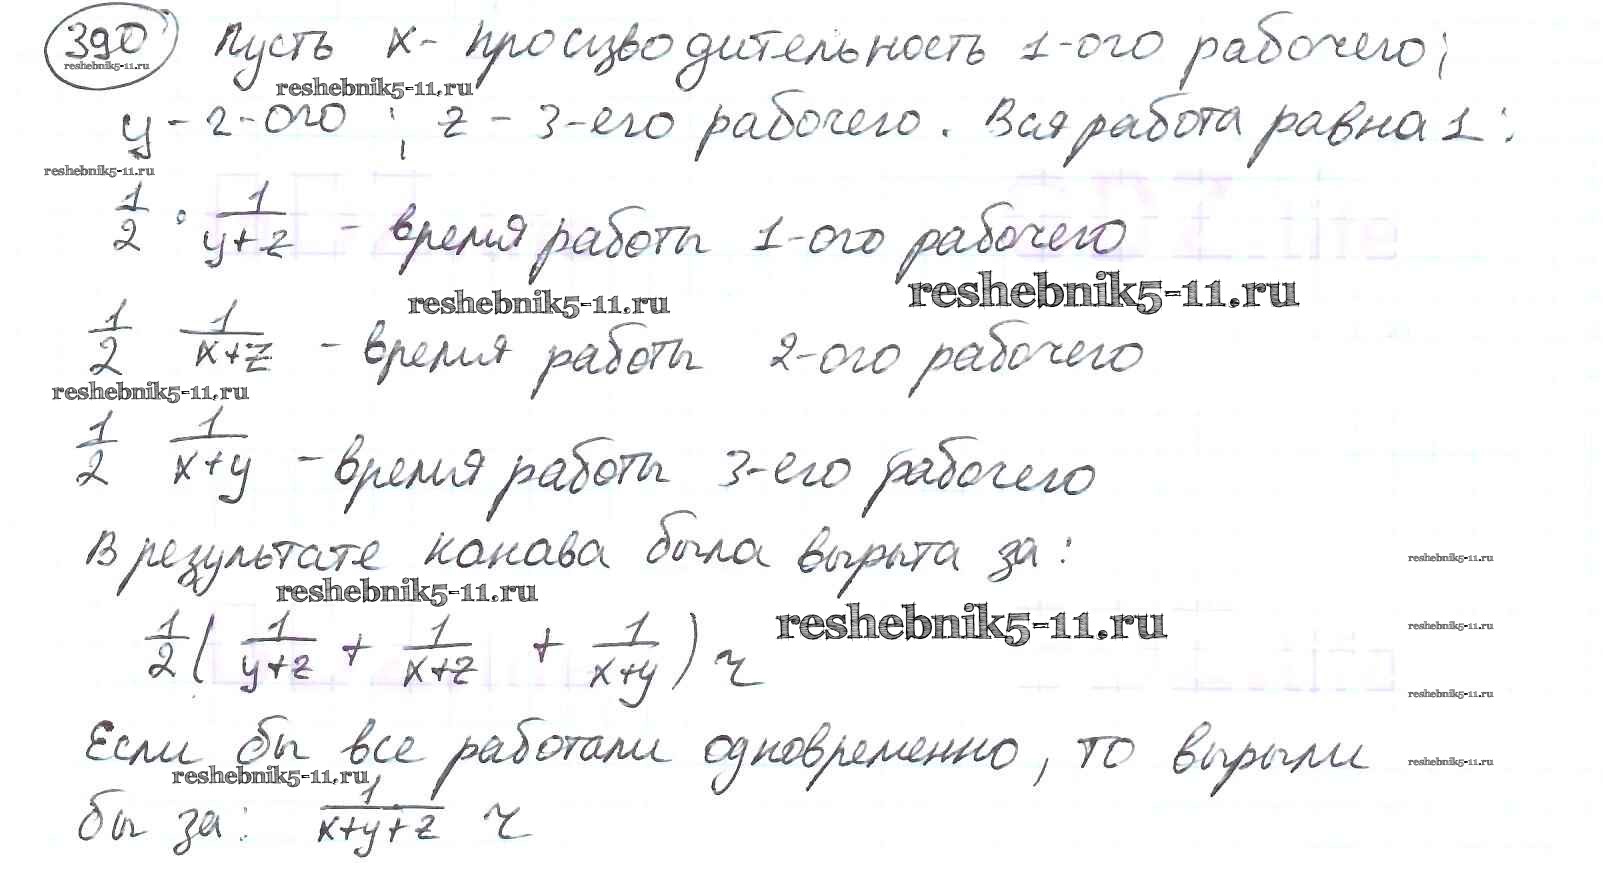 390 Пусть x - производительность 1-ого рабочего;
reshebnik5-11.ru
reshebnik5-11.ru
y - 2-ого ; z - 3-его рабочего. Вся работа равна 1:
reshebnik5-11.ru
1/2 · 1/(y+z) - время работы 1-ого рабочего
reshebnik5-11.ru
reshebnik5-11.ru
1/2 1/(x+z) - время работы 2-ого рабочего
reshebnik5-11.ru
1/2 1/(x+y) - время работы 3-его рабочего
В результате канава была вырыта за:
reshebnik5-11.ru
reshebnik5-11.ru
1/2 ( 1/(y+z) + 1/(x+z) + 1/(x+y) ) ч
reshebnik5-11.ru
reshebnik5-11.ru
reshebnik5-11.ru
Если бы все работали одновременно, то вырыли
reshebnik5-11.ru
reshebnik5-11.ru
бы за: 1/(x+y+z) ч